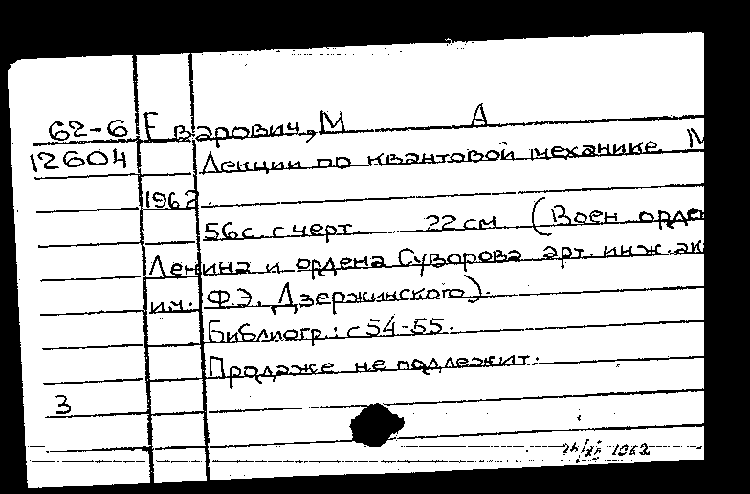 62-6 Г варович, М А
12604 Лекции по квантовой механике. М
1962.
56 с. с черт. 22 см. (Воен орде
Ленина и ордена Суворова арт. инж. ак
им. Ф.Э. Дзержинского).
Библиогр.: с 54-55.
Продаже не подлежит.
3
1962